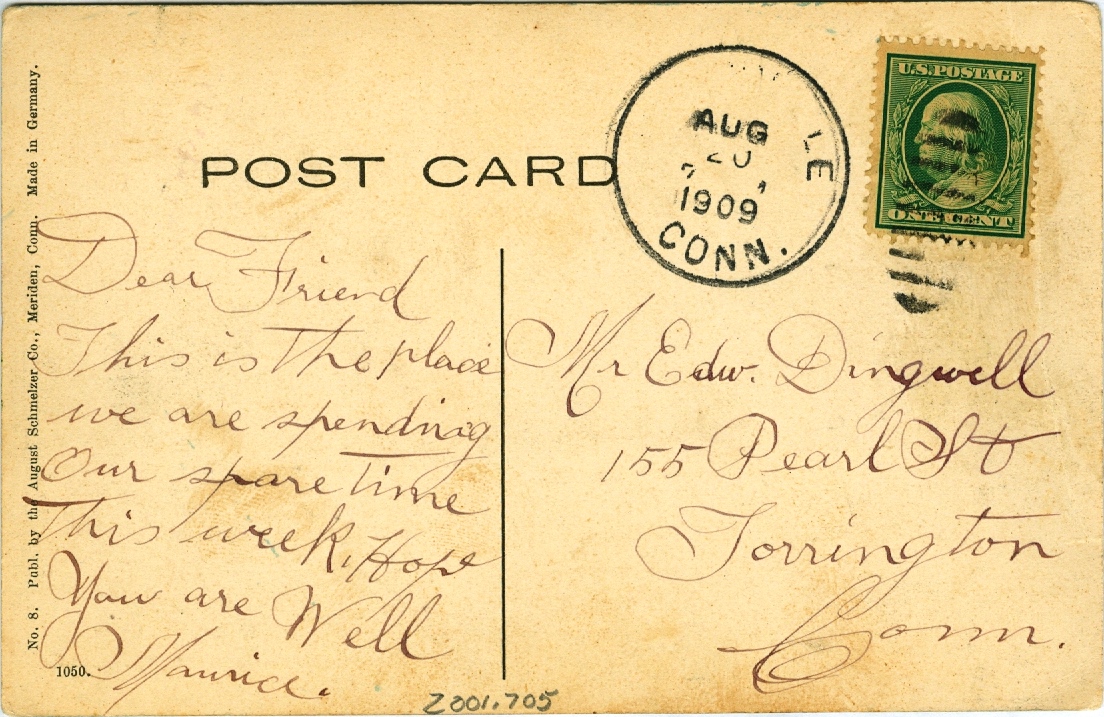 POST CARD
AUG
20
1909
LE
CONN.
U.S.POSTAGE
ONE CENT
Dear Friend
This is the place
we are spending
Our spare time
This week, Hope
You are Well
Maurice.
Mr Edw. Dingwell
155 Pearl St
Torrington
Conn.
No. 8. Publ. by the August Schmelzer Co., Meriden, Conn. Made in Germany.
1050.
2001.705